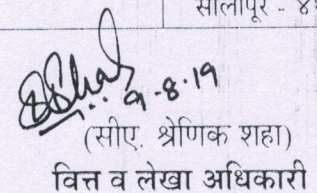 सोलापूर - ४
९-८-१९
(सीए. श्रेणिक शहा)
वित्त व लेखा अधिकारी